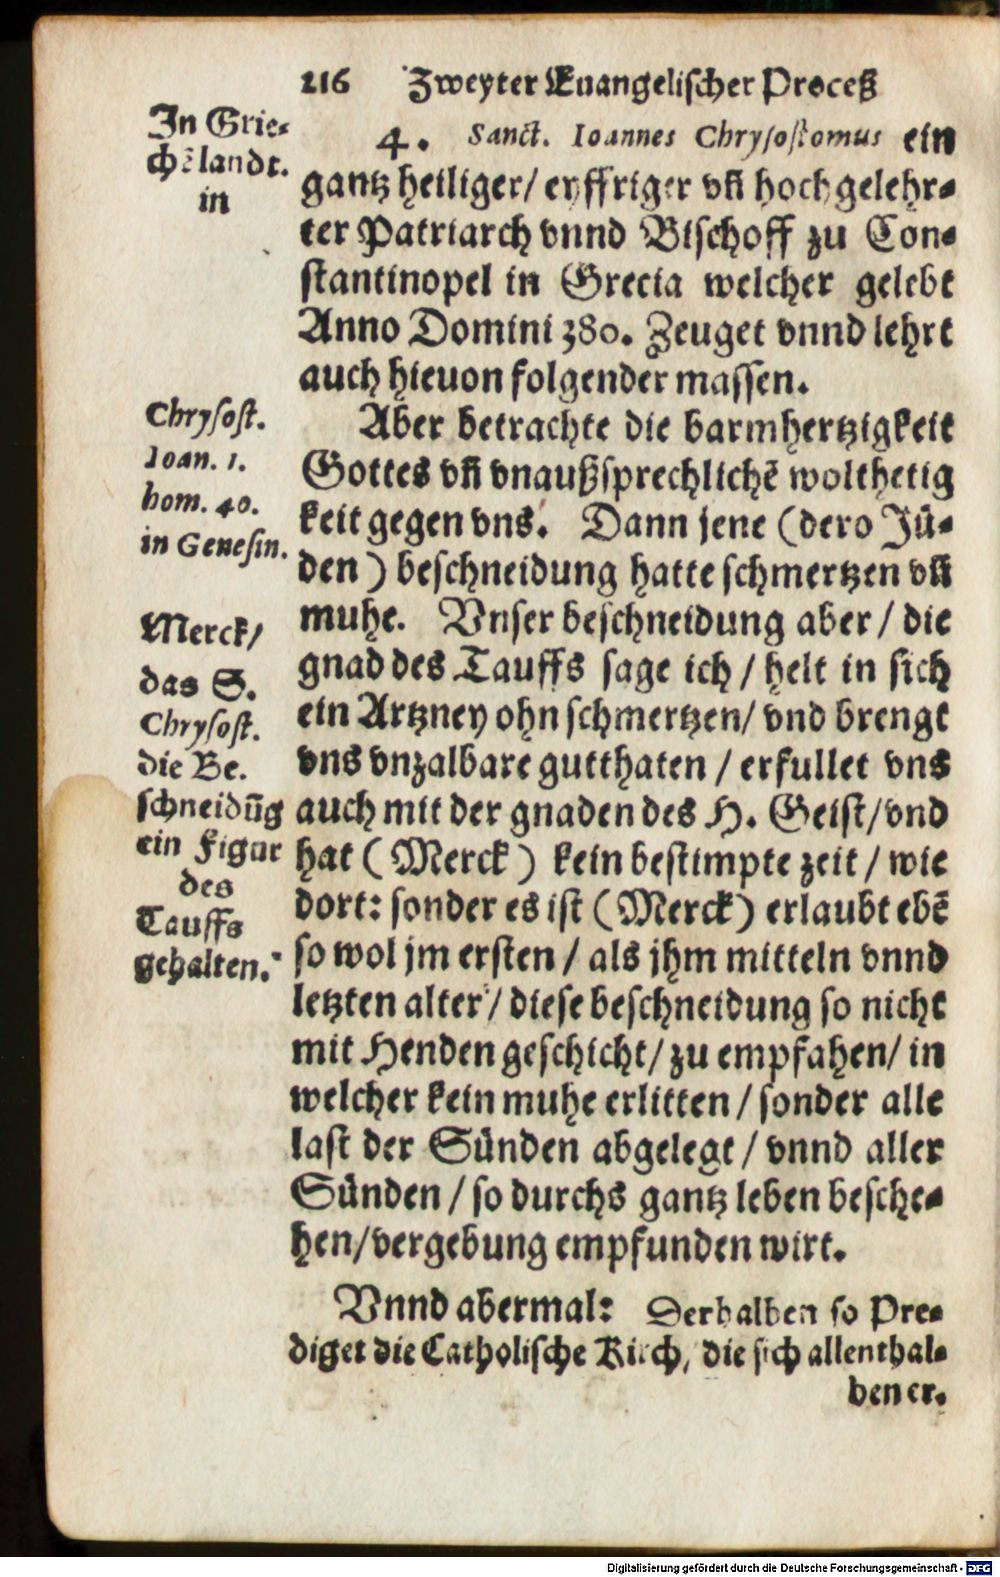 216 Zweyter Euangelischer Proceß
In Grie-
chẽlandt.
in
4. Sanct. Ioannes Chrysostomus ein
gantz heiliger/ eyffriger vñ hochgelehr-
ter Patriarch vnnd Bischoff zu Con-
stantinopel in Grecia welcher gelebt
Anno Domini 380. Zeuget vnnd lehrt
auch hieuon folgender massen.
Chrysost.
Ioan. 1.
hom. 40.
in Genesin.
Aber betrachte die barmhertzigkeit
Gottes vñ vnaußsprechlichẽ wolthetig
keit gegen vns. Dann jene (dero Jü-
den) beschneidung hatte schmertzen vñ
muhe. Vnser beschneidung aber/ die
gnad des Tauffs sage ich/ helt in sich
ein Artzney ohn schmertzen/ vnd brengt
vns vnzalbare gutthaten/ erfullet vns
auch mit der gnaden des H. Geist/ vnd
hat (Merck) kein bestimpte zeit/ wie
dort: sonder es ist (Merck) erlaubt ebẽ
so wol jm ersten/ als jhm mitteln vnnd
letzten alter/ diese beschneidung so nicht
mit Henden geschicht/ zu empfahen/ in
welcher kein muhe erlitten/ sonder alle
last der Sünden abgelegt/ vnnd aller
Sünden/ so durchs gantz leben besche-
hen/ vergebung empfunden wirt.
Merck/
das S.
Chrysost.
die Be.
schneidũg
ein Figur
des
Tauffs
gehalten.
Vnnd abermal: Derhalben so Pre-
diget die Catholische Kirch, die sich allenthal-
ben er.
Digitalisierung gefördert durch die Deutsche Forschungsgemeinschaft - DFG